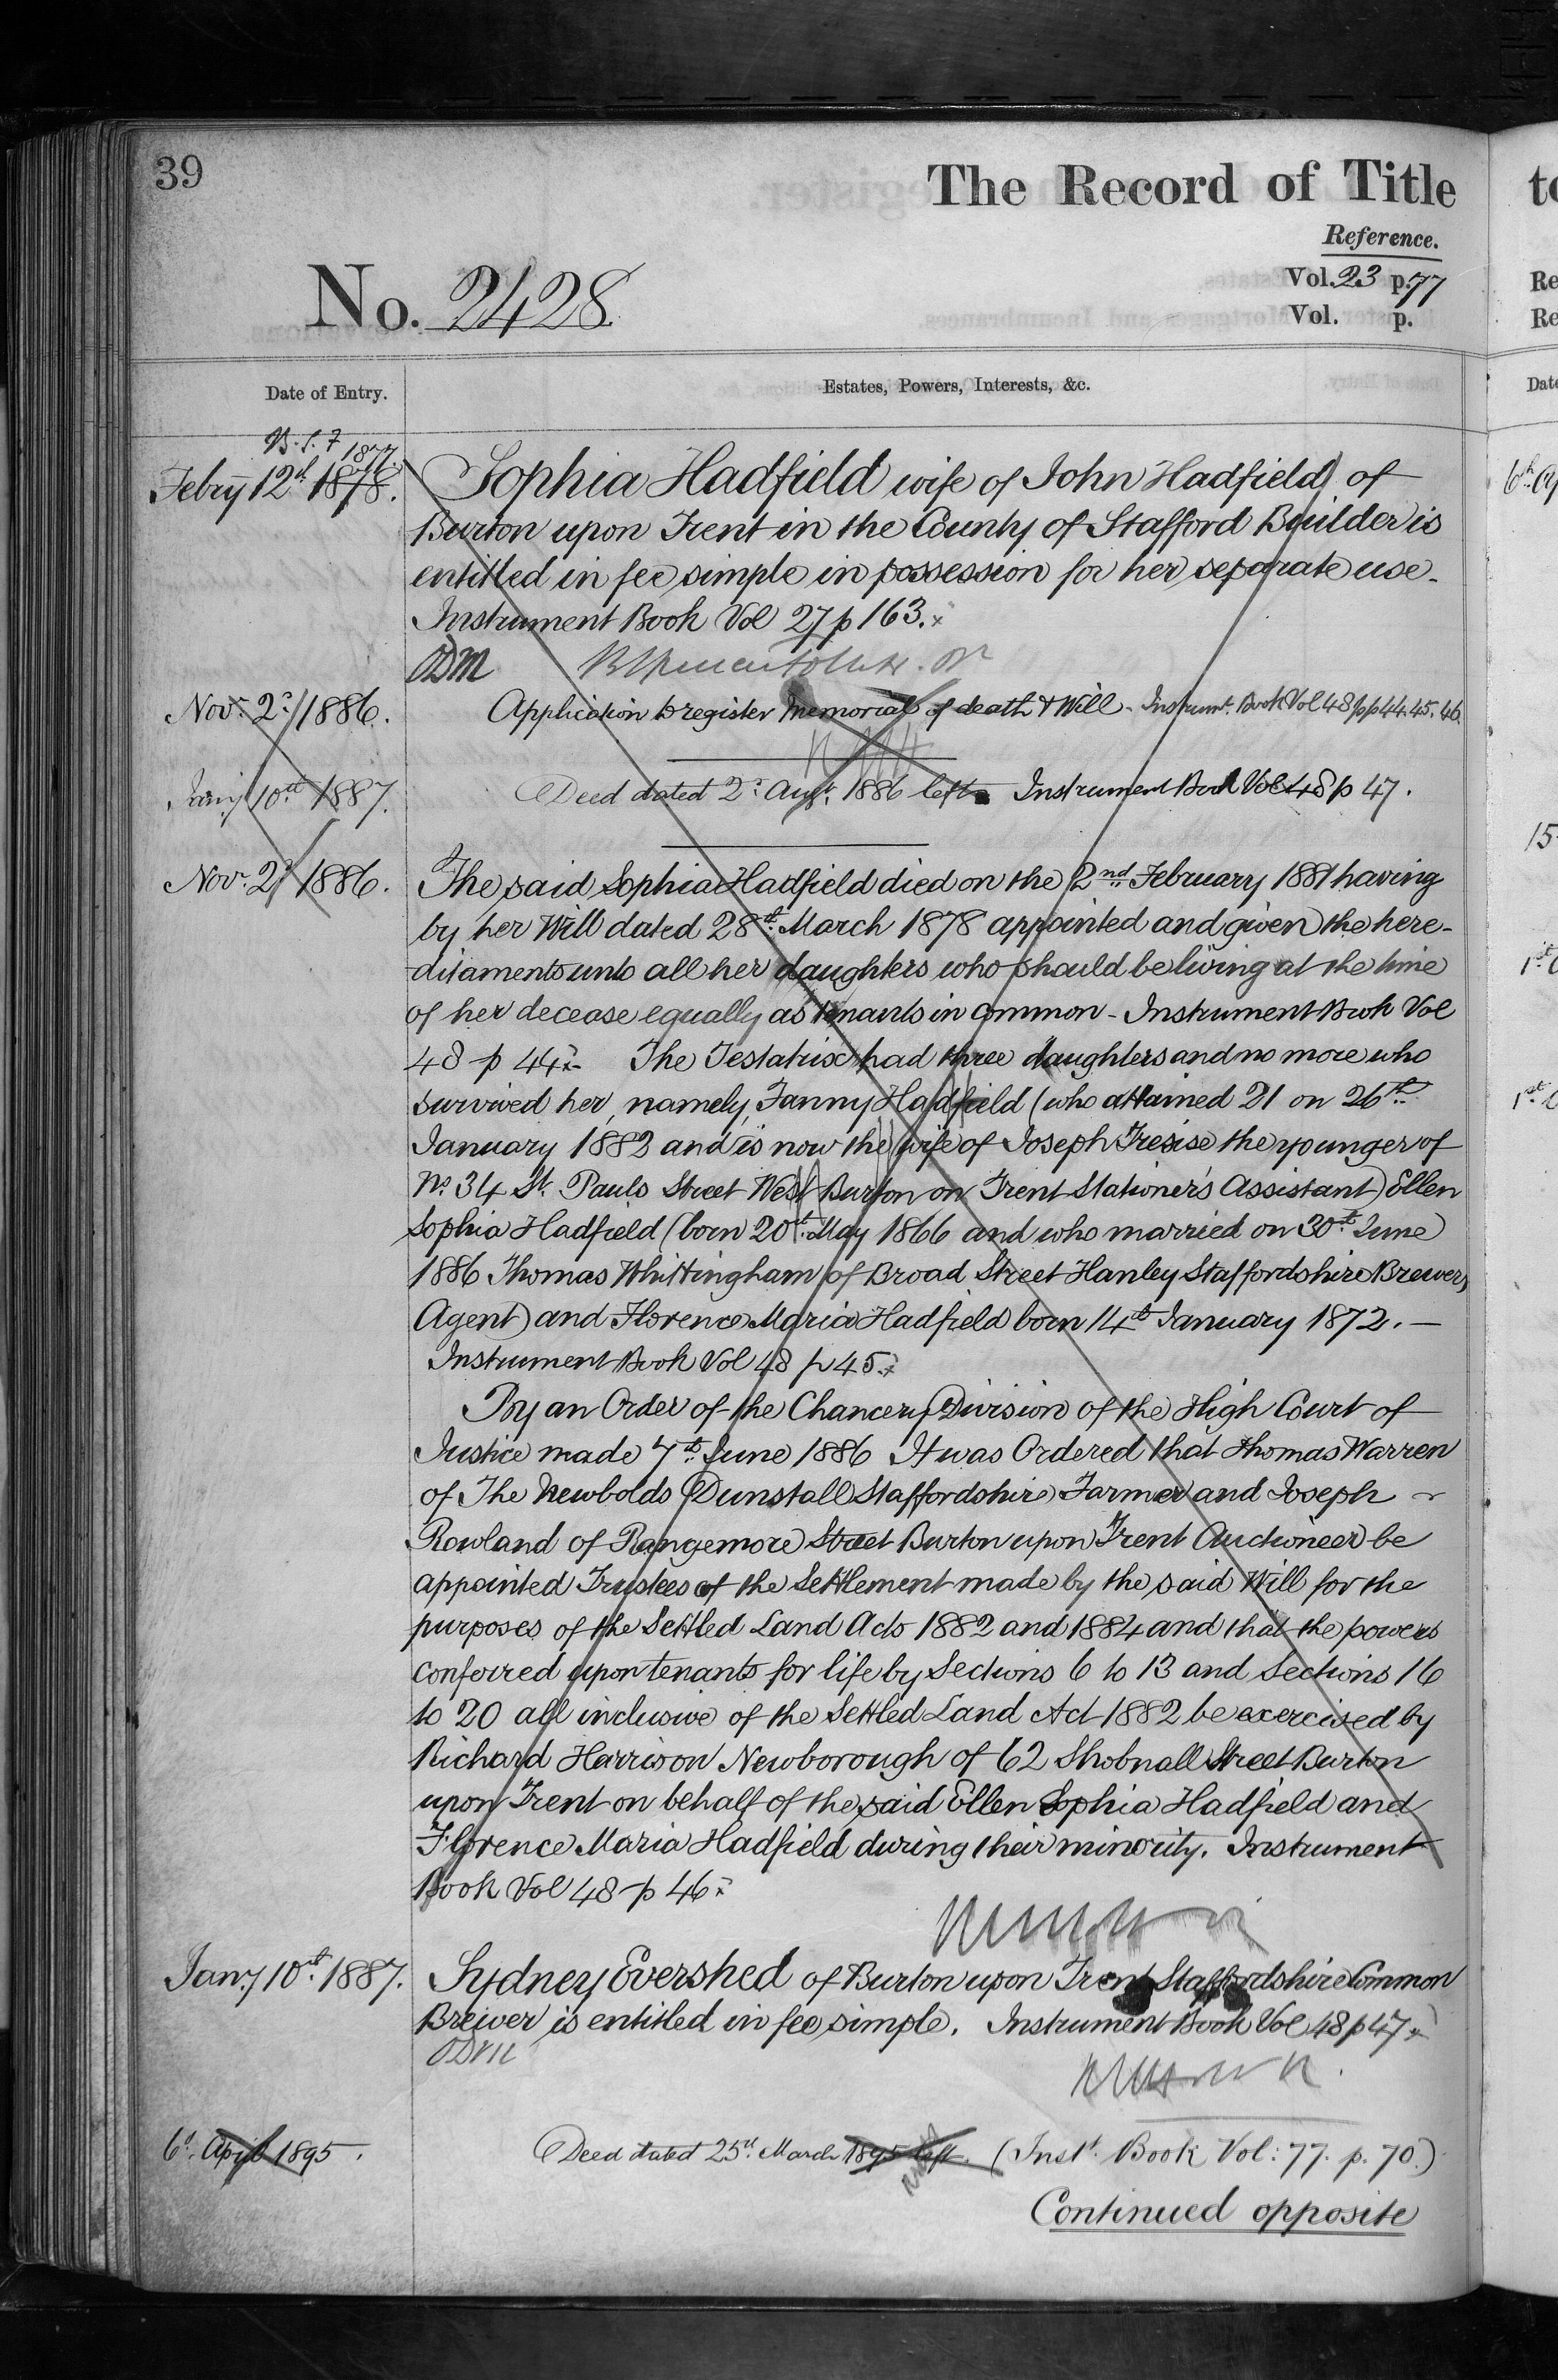 39
The Record of Title
Reference.
No. 2428
Vol. 23 p. 77
Vol. p.
Date of Entry.
Estates, Powers, Interests, &c.
1877.
Febry 12th 1878.
Sophia Hadfield wife of John Hadfield of
Burton upon Trent in the County of Stafford Builder is
entitled in fee simple in possession for her separate use.
Instrument Book Vol 27 p 163.
Novr. 2d 1886.
Application to register Memorial of death & Will - Instrumt. Book Vol 48 pp 44. 45. 46.
Jany 10th 1887.
Deed dated 2d Augt. 1886 left Instrument Book Vol 48 p 47.
Novr. 2d 1886.
The said Sophia Hadfield died on the 2nd February 1881 having
by her Will dated 28th March 1878 appointed and given the here-
ditaments unto all her daughters who should be living at the time
of her decease equally as tenants in common - Instrument Book Vol
48 p 44. The Testatrix had three daughters and no more who
survived her, namely, Fanny Hadfield (who attained 21 on 26th
January 1882 and is now the wife of Joseph Tresise the younger of
No. 34 St. Pauls Street West Burton on Trent Stationer's Assistant) Ellen
Sophia Hadfield (born 20th May 1866 and who married on 30th June
1886 Thomas Whittingham of Broad Street Hanley Staffordshire Brewers
Agent) and Florence Maria Hadfield born 14th January 1872. —
Instrument Book Vol 48 p 45.
By an Order of the Chancery Division of the High Court of
Justice made 7th June 1886 It was Ordered that Thomas Warren
of The Newbolds Dunstall Staffordshire Farmer and Joseph
Rowland of Rangemore Street Burton upon Trent Auctioneer be
appointed Trustees of the Settlement made by the said Will for the
purposes of the Settled Land Acts 1882 and 1884 and that the powers
conferred upon tenants for life by Sections 6 to 13 and Sections 16
to 20 all inclusive of the Settled Land Act 1882 be exercised by
Richard Harrison Newborough of 62 Shobnall Street Burton
upon Trent on behalf of the said Ellen Sophia Hadfield and
Florence Maria Hadfield during their minority. Instrument
Book Vol 48 p 46.
Jany 10th 1887.
Sydney Evershed of Burton upon Trent Staffordshire Common
Brewer is entitled in fee simple. Instrument Book Vol 48 p 47.
6th April 1895.
Deed dated 25th March 1895 left. (Inst. Book Vol: 77. p. 70.)
Continued opposite